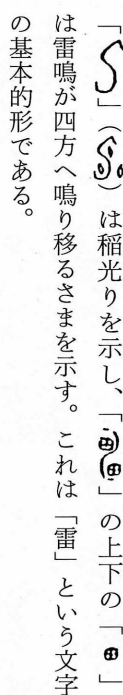 「」（）は稲光りを示し、「」の上下の「」
は雷鳴が四方へ鳴り移るさまを示す。これは「雷」という文字
の基本的形である。